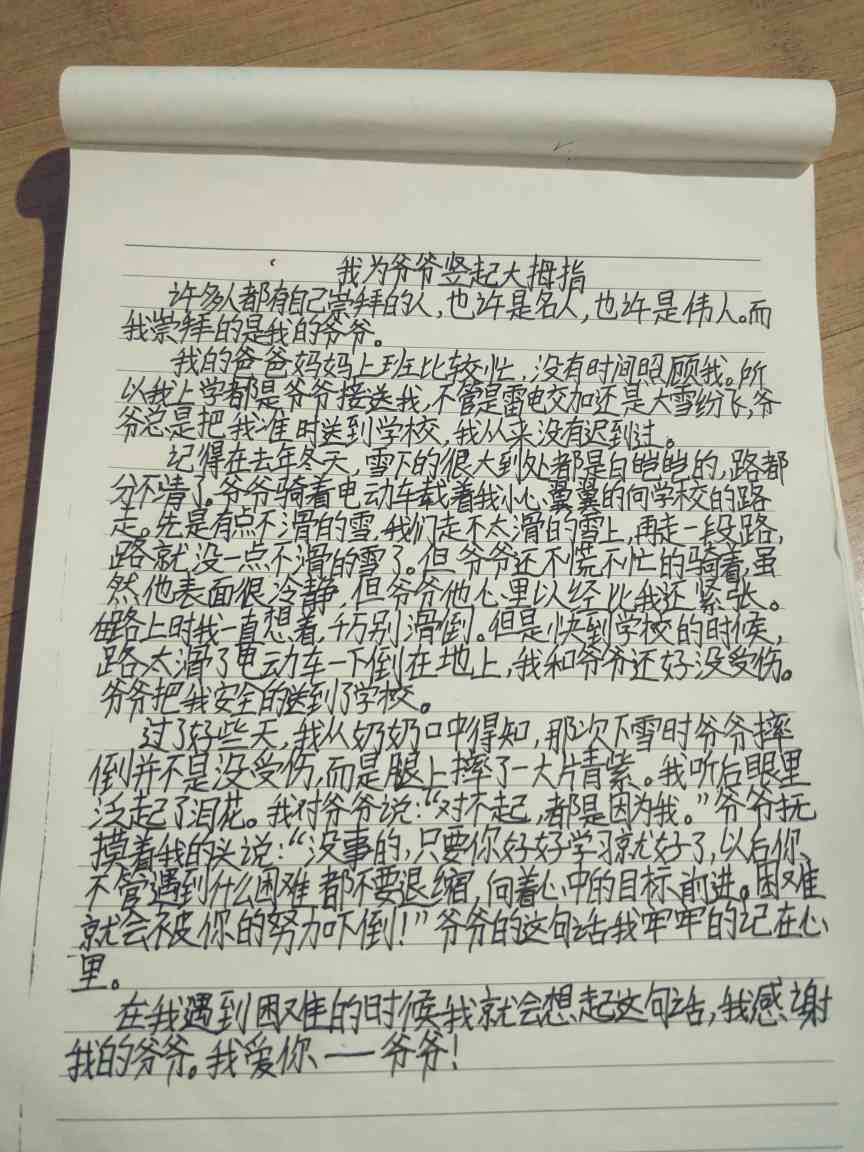 我为爷爷竖起大拇指
许多人都有自己崇拜的人,也许是名人,也许是伟人。而
我崇拜的是我的爷爷。
我的爸爸妈妈上班比较忙,没有时间照顾我。所
以我上学都是爷爷接送我,不管是雷电交加还是大雪纷飞,爷
爷总是把我准时送到学校,我从来没有迟到过。
记得在去年冬天,雪下的很大到处都是白皑皑的,路都
分不清了。爷爷骑着电动车载着我小心翼翼的向学校的路
走。先是有点不滑的雪,我们走不太滑的雪上,再走一段路,
路就没一点不滑的雪了。但爷爷还不慌不忙的骑着,虽
然他表面很冷静,但爷爷他心里以经比我还紧张。
每路上时我一直想着,千万别滑倒。但是快到学校的时候,
路太滑了电动车一下倒在地上,我和爷爷还好没受伤。
爷爷把我安全的送到了学校。
过了好些天,我从奶奶口中得知,那次下雪时爷爷摔
倒并不是没受伤,而是腿上摔了一大片青紫。我听后眼里
泛起了泪花。我对爷爷说:“对不起,都是因为我。”爷爷抚
摸着我的头说:“没事的,只要你好好学习就好了,以后你
不管遇到什么困难都不要退缩,向着心中的目标前进。困难
就会被你的努力吓倒!”爷爷的这句话我牢牢的记在心
里。
在我遇到困难的时候我就会想起这句话,我感谢
我的爷爷。我爱你——爷爷!